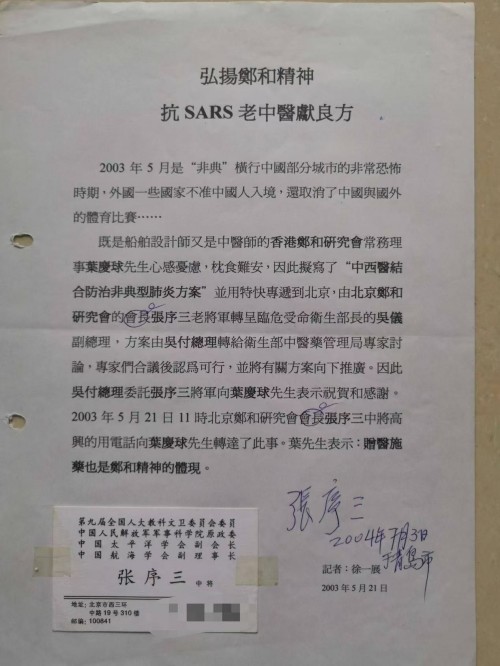 弘揚鄭和精神
抗 SARS 老中醫獻良方
2003 年 5 月是“非典”橫行中國部分城市的非常恐怖
時期，外國一些國家不准中國人入境，還取消了中國與國外
的體育比賽……
既是船舶設計師又是中醫師的香港鄭和研究會常務理
事葉慶球先生心感憂慮，枕食難安，因此擬寫了“中西醫結
合防治非典型肺炎方案”並用特快專遞到北京，由北京鄭和
研究會的會長張序三老將軍轉呈臨危受命衛生部長的吳儀
副總理，方案由吳付總理轉給衛生部中醫藥管理局專家討
論，專家們合議後認爲可行，並將有關方案向下推廣。因此
吳付總理委託張序三將軍向葉慶球先生表示祝賀和感謝。
2003 年 5 月 21 日 11 時北京鄭和研究會會長張序三中將高
興的用電話向葉慶球先生轉達了此事。葉先生表示：贈醫施
藥也是鄭和精神的體現。
張序三
2004年7月3日
于青島市
記者：徐一展
2003 年 5 月 21 日
第九届全国人大教科文卫委员会委员
中国人民解放军军事科学院原政委
中国太平洋学会副会长
中国航海学会副理事长
张序三 中将
地址：北京市西三环
中路 19 号 310 楼
邮编：100841